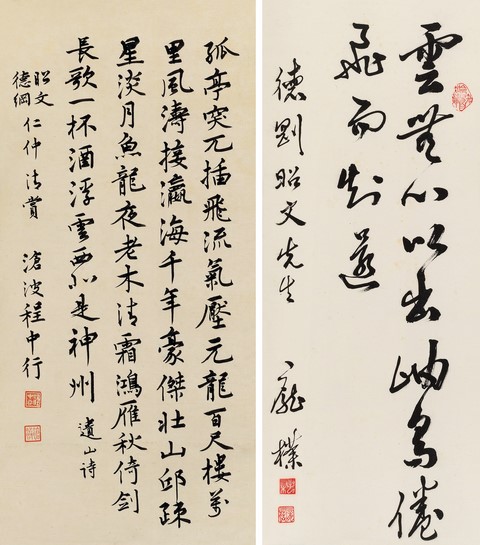 孤亭突兀插飛流氣壓元龍百尺樓萬
里風濤接瀛海千年豪傑壯山邱疎
星淡月魚龍夜老木清霜鴻雁秋倚劍
長歌一杯酒浮雲西北是神州 遺山詩
昭文
德綱
仁仲清賞 滄波程中行
雲無心以出岫鳥倦
飛而知還
德剛昭文先生 龐樸